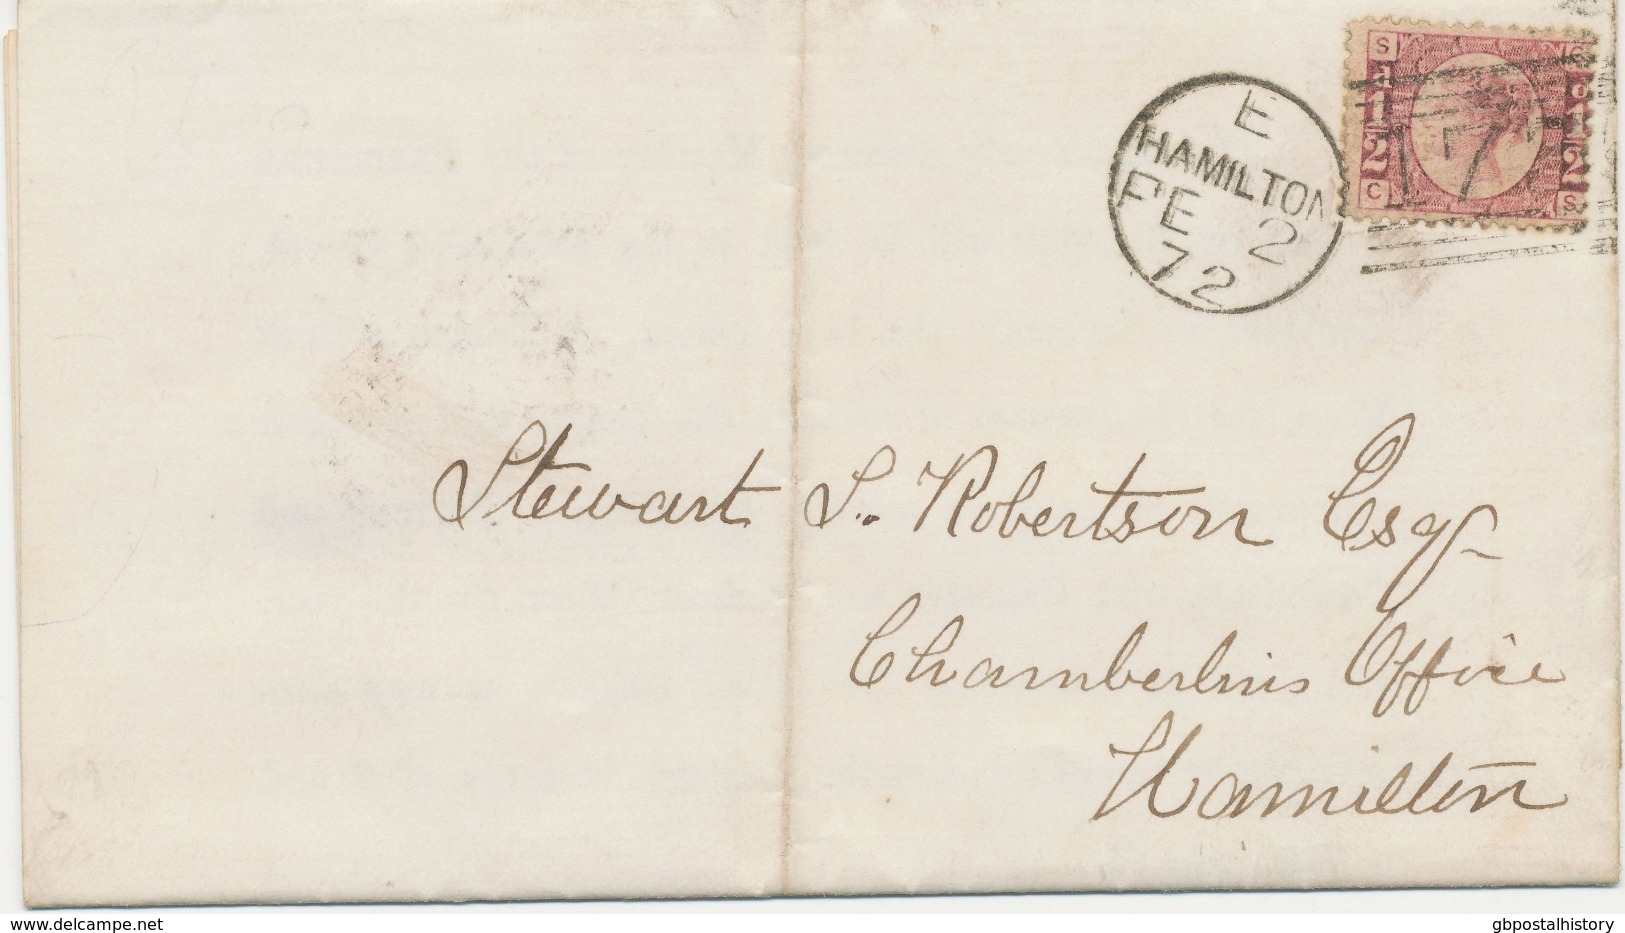 E
HAMILTON
FE 2
72
S C
C S
Stewart S. Robertson Esqr
Chamberlins Office
Hamilton
delcampe.net
gbpostalhistory